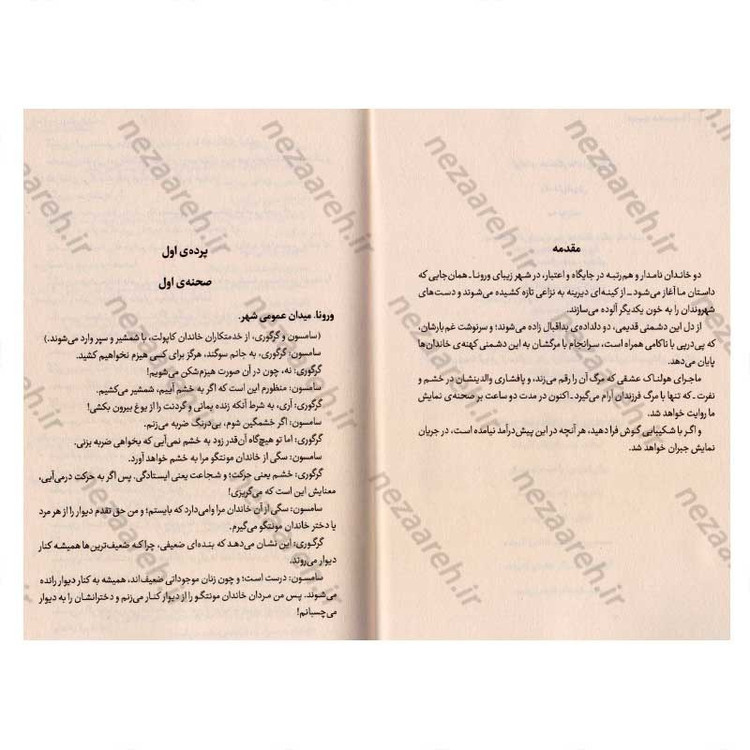 مقدمه
دو خاندان نامدار و هم‌رتبه در جایگاه و اعتبار، در شهر زیبای ورونا ـ همان جایی که
داستان ما آغاز می‌شود ـ از کینه‌ای دیرینه به نزاعی تازه کشیده می‌شوند و دست‌های
شهروندان را به خون یکدیگر آلوده می‌سازند.
از دل این دشمنی قدیمی، دو دلداده‌ی بداقبال زاده می‌شوند؛ و سرنوشت غم‌بارشان،
که پی‌درپی با ناکامی همراه است، سرانجام با مرگشان به این دشمنی کهنه‌ی خاندان‌ها
پایان می‌دهد.
ماجرای هولناک عشقی که مرگ آن را رقم می‌زند، و پافشاری والدینشان در خشم و
نفرت ـ که تنها با مرگ فرزندان آرام می‌گیرد ـ اکنون در مدت دو ساعت بر صحنه‌ی نمایش
ما روایت خواهد شد.
و اگر با شکیبایی گوش فرا دهید، هر آنچه در این پیش‌درآمد نیامده است، در جریان
نمایش جبران خواهد شد.
پرده‌ی اول
صحنه‌ی اول
ورونا. میدان عمومی شهر.
(سامسون و گرگوری، از خدمتکاران خاندان کاپولت، با شمشیر و سپر وارد می‌شوند.)
سامسون: گرگوری، به جانم سوگند، هرگز برای کسی هیزم نخواهیم کشید.
گرگوری: نه، چون در آن صورت هیزم‌شکن می‌شویم!
سامسون: منظورم این است که اگر به خشم آییم، شمشیر می‌کشیم.
گرگوری: آری، به شرط آنکه زنده بمانی و گردنت را از یوغ بیرون بکشی!
سامسون: اگر خشمگین شوم، بی‌درنگ ضربه می‌زنم.
گرگوری: اما تو هیچ‌گاه آن‌قدر زود به خشم نمی‌آیی که بخواهی ضربه بزنی.
سامسون: سگی از خاندان مونتگو مرا به خشم خواهد آورد.
گرگوری: خشم یعنی حرکت؛ و شجاعت یعنی ایستادگی. پس اگر به حرکت درمی‌آیی،
معنایش این است که می‌گریزی!
سامسون: سگی از آن خاندان مرا وامی‌دارد که بایستم؛ و من حق تقدم دیوار را از هر مرد
یا دختر خاندان مونتگو می‌گیرم.
گرگوری: این نشان می‌دهد که بنده‌ای ضعیفی، چرا که ضعیف‌ترین‌ها همیشه کنار
دیوار می‌روند.
سامسون: درست است؛ و چون زنان موجوداتی ضعیف‌اند، همیشه به کنار دیوار رانده
می‌شوند. پس من مردان خاندان مونتگو را از دیوار کنار می‌زنم و دخترانشان را به دیوار
می‌چسبانم!
nezaareh.ir
nezaareh.ir
nezaareh.ir
nezaareh.ir
nezaareh.ir
nezaareh.ir
nezaareh.ir